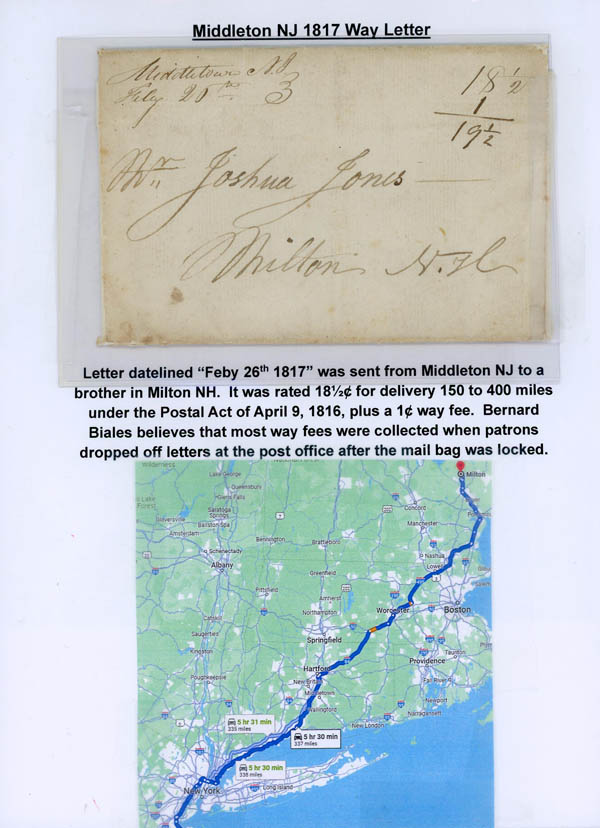 Middleton NJ 1817 Way Letter
Middletown N.J
Feby 26th 3
18 1/2
1
19 1/2
Mr Joshua Jones
Milton N. H
Letter datelined “Feby 26th 1817” was sent from Middleton NJ to a
brother in Milton NH. It was rated 18½¢ for delivery 150 to 400 miles
under the Postal Act of April 9, 1816, plus a 1¢ way fee. Bernard
Biales believes that most way fees were collected when patrons
dropped off letters at the post office after the mail bag was locked.
Wilderness
Lake George
Queensbury
Glens Falls
Saratoga
Springs
Ballston Spa
Gloversville
Amsterdam
Schenectady
Albany
Bennington
Brattleboro
Concord
Manchester
Milton
Dover
Nashua
Lowell
Greenfield
Pittsfield
Amherst
Northampton
Worcester
Boston
Springfield
Catskill
Saugerties
Kingston
Poughkeepsie
Hartford
New Britain
Middletown
Wallingford
Providence
Taunton
Fall River
Newport
Narragansett
New London
5 hr 31 min
335 miles
5 hr 30 min
337 miles
5 hr 30 min
338 miles
New York
Long Island